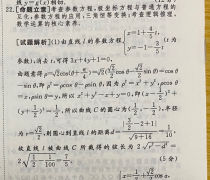 线y=g(x)相切.
22.[命题立意]考查参数方程,极坐标方程与普通方程的
互化,参数方程的应用;三角恒等变换;考查逻辑推理、
数学运算的核心素养.
[试题解析](1)由直线l的参数方程{x=1+4/5 t, y=-1-3/5 t,(t为
参数),消去t,可得3x+4y+1=0.
由题意得ρ=√2cos(θ+π/4)=√2(√2/2 cosθ-√2/2 sinθ)=cosθ
-sinθ,即ρ²=ρcosθ-ρsinθ,因为ρ²=x²+y²,ρcosθ
=x,ρsinθ=y,所以x²+y²-x+y=0,即(x-1/2)²+
(y+1/2)²=1/2,所以曲线C的圆心为(1/2,-1/2),半径
为r=√2/2,则圆心到直线l的距离d=|3/2-2+1|/√(9+16)=1/10,
故直线l被曲线C所截得的弦长为2√(r²-d²)=
2√(1/2-1/100)=7/5.
(5分)